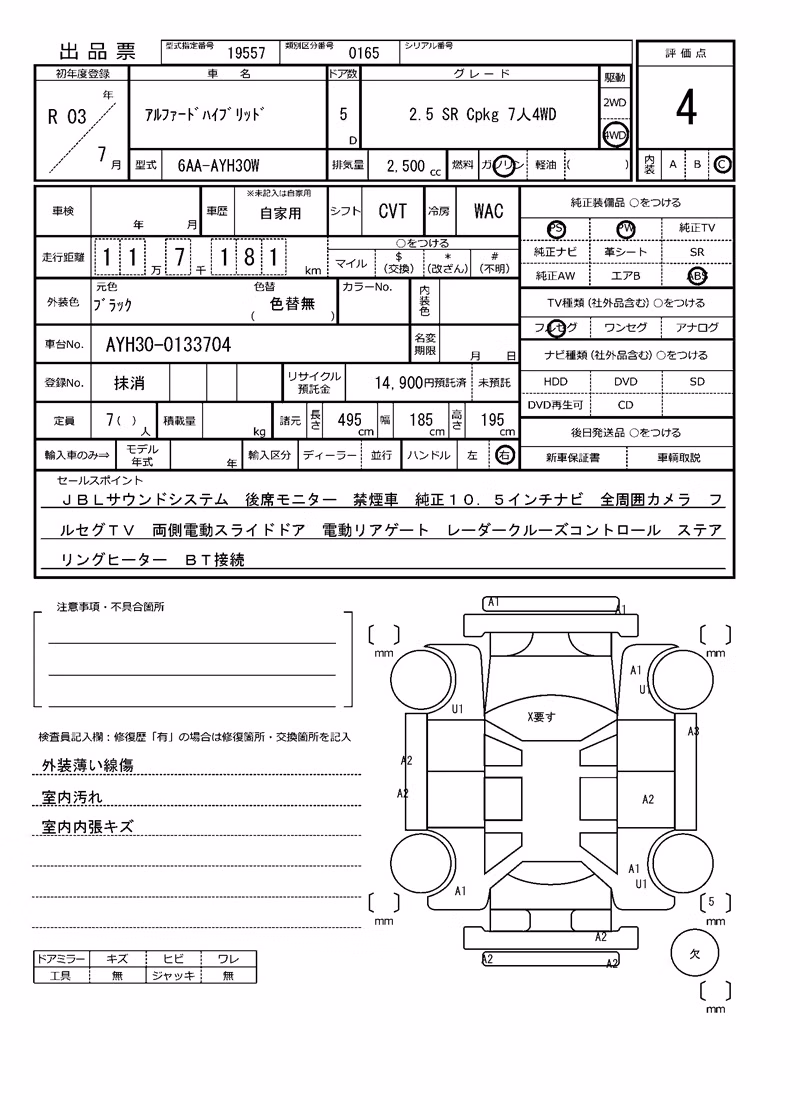 出品票
型式指定番号 19557 類別区分番号 0165 シリアル番号
評価点
4
内装 A B C
初年度登録 車名 ドア数 グレード 駆動
R 03 年 7 月
ｱﾙﾌｧｰﾄﾞﾊｲﾌﾞﾘｯﾄﾞ
5 D
2.5 SR Cpkg 7人4WD
2WD
4WD
型式 6AA-AYH30W 排気量 2,500 cc 燃料 ガソリン 軽油 ( )
車検 年 月 車歴 ※未記入は自家用 自家用 シフト CVT 冷房 WAC
走行距離 11万7千181 km
○をつける
マイル $(交換) *(改ざん) #(不明)
外装色 元色 ﾌﾞﾗｯｸ 色替 ( 色替無 ) カラーNo. 内装色
車台No. AYH30-0133704 名変期限 月 日
登録No. 抹消 リサイクル預託金 14,900円預託済 未預託
定員 7( )人 積載量 kg 諸元 長さ 495cm 幅 185cm 高さ 195cm
輸入車のみ⇒ モデル年式 年 輸入区分 ディーラー 並行 ハンドル 左 右
純正装備品 ○をつける
PS PW 純正TV
純正ナビ 革シート SR
純正AW エアB ABS
TV種類(社外品含む) ○をつける
フルセグ ワンセグ アナログ
ナビ種類(社外品含む) ○をつける
HDD DVD SD
DVD再生可 CD
後日発送品 ○をつける
新車保証書 車輌取説
セールスポイント
ＪＢＬサウンドシステム 後席モニター 禁煙車 純正１０．５インチナビ 全周囲カメラ フ
ルセグＴＶ 両側電動スライドドア 電動リアゲート レーダークルーズコントロール ステア
リングヒーター ＢＴ接続
注意事項・不具合箇所
検査員記入欄：修復歴「有」の場合は修復箇所・交換箇所を記入
外装薄い線傷
室内汚れ
室内内張キズ
ドアミラー キズ ヒビ ワレ
工具 無 ジャッキ 無
A1
A1
mm
mm
A1
U1
U1
X要す
A3
A2
A2
A2
A1
U1
A1
mm
5
mm
A2
A2
A2
欠
mm